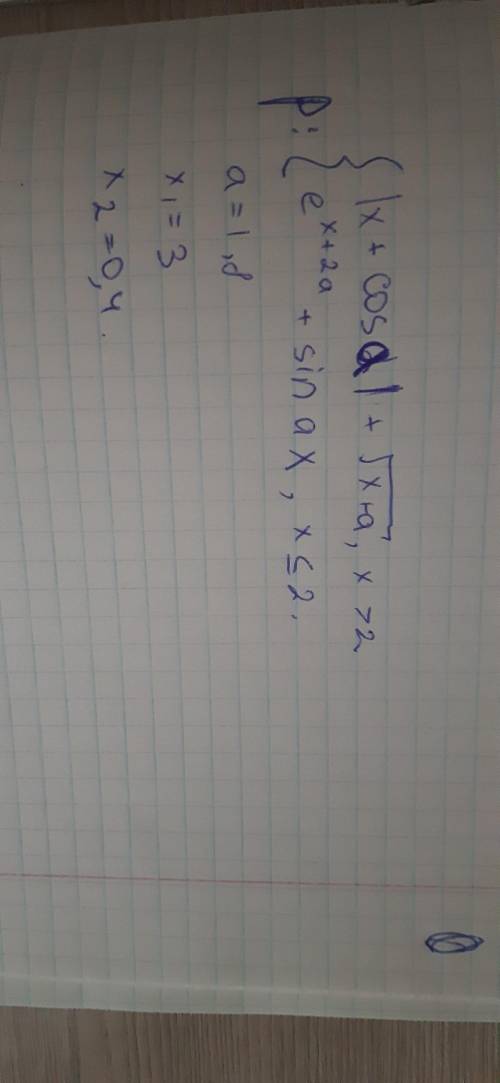 |x + cos a| + √x+a, x > 2
p: {
e^x+2a + sin ax, x ≤ 2.
a = 1,8
x1 = 3
x2 = 0,4.